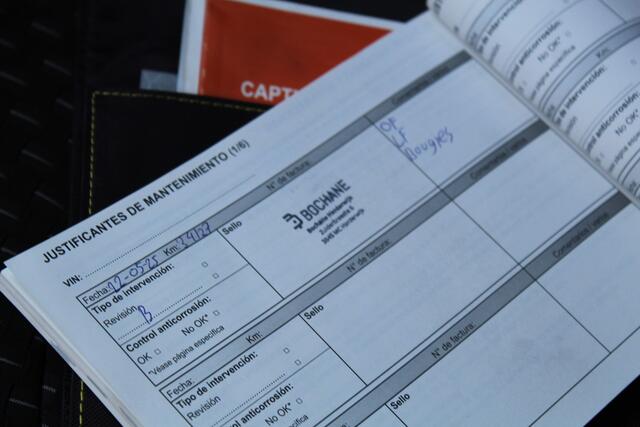 CAPT
JUSTIFICANTES DE MANTENIMIENTO (1/6)
VIN:
Fecha: 12-05-25 Km:
Tipo de intervención:
Revisión B
Control anticorrosión:
OK No OK*
*Véase página específica
N° de factura:
Sello
BOCHANE
Comentarios / varios
OF
LF
Fecha: Km:
Tipo de intervención:
Revisión
Control anticorrosión:
No OK*
N° de factura:
Sello
Comentarios / varios
N° de factura:
Sello
Comentarios / varios
Tipo de intervención:
Control anticorrosión:
No OK*
*Véase página específica
Km:
Tipo de intervención:
Control anticorrosión:
No OK*